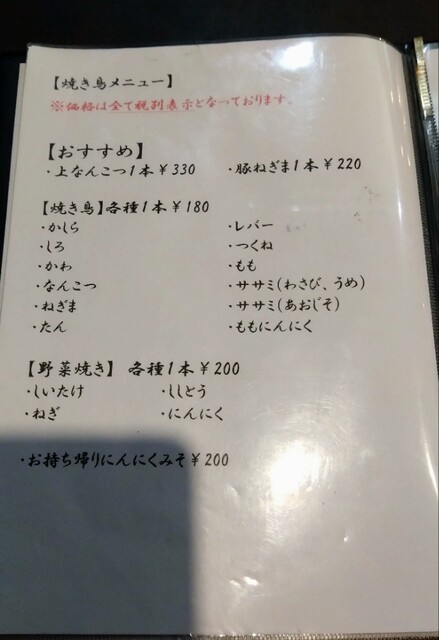 【焼き鳥メニュー】
※価格は全て税別表示となっております。
【おすすめ】
・上なんこつ1本￥330 ・豚ねぎま1本￥220
【焼き鳥】各種1本￥180
・かしら ・レバー
・しろ ・つくね
・かわ ・もも
・なんこつ ・ササミ(わさび、うめ)
・ねぎま ・ササミ(あおじそ)
・たん ・ももにんにく
【野菜焼き】 各種1本￥200
・しいたけ ・ししとう
・ねぎ ・にんにく
・お持ち帰りにんにくみそ￥200